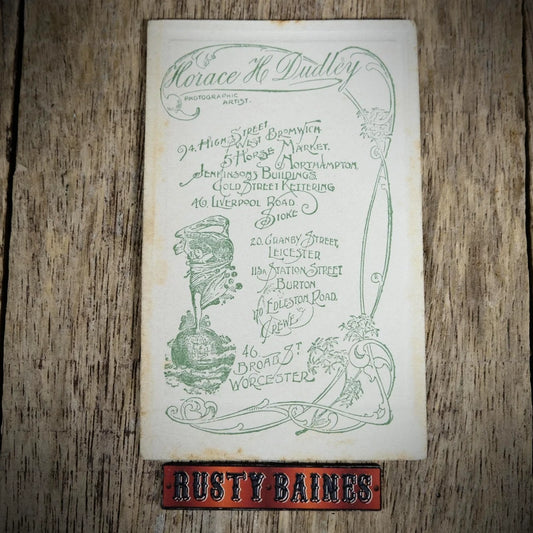 Horace H Dudley
PHOTOGRAPHIC
ARTIST.
94. HIGH STREET
WEST BROMWICH
5 HORSE MARKET.
NORTHAMPTON.
JENKINSONS BUILDINGS
GOLD STREET KETTERING
46. LIVERPOOL ROAD
STOKE
20. GRANBY STREET,
LEICESTER
113A STATION STREET
BURTON
EDLESTON ROAD.
CREWE
46.
BROAD ST
WORCESTER
RUSTY BAINES